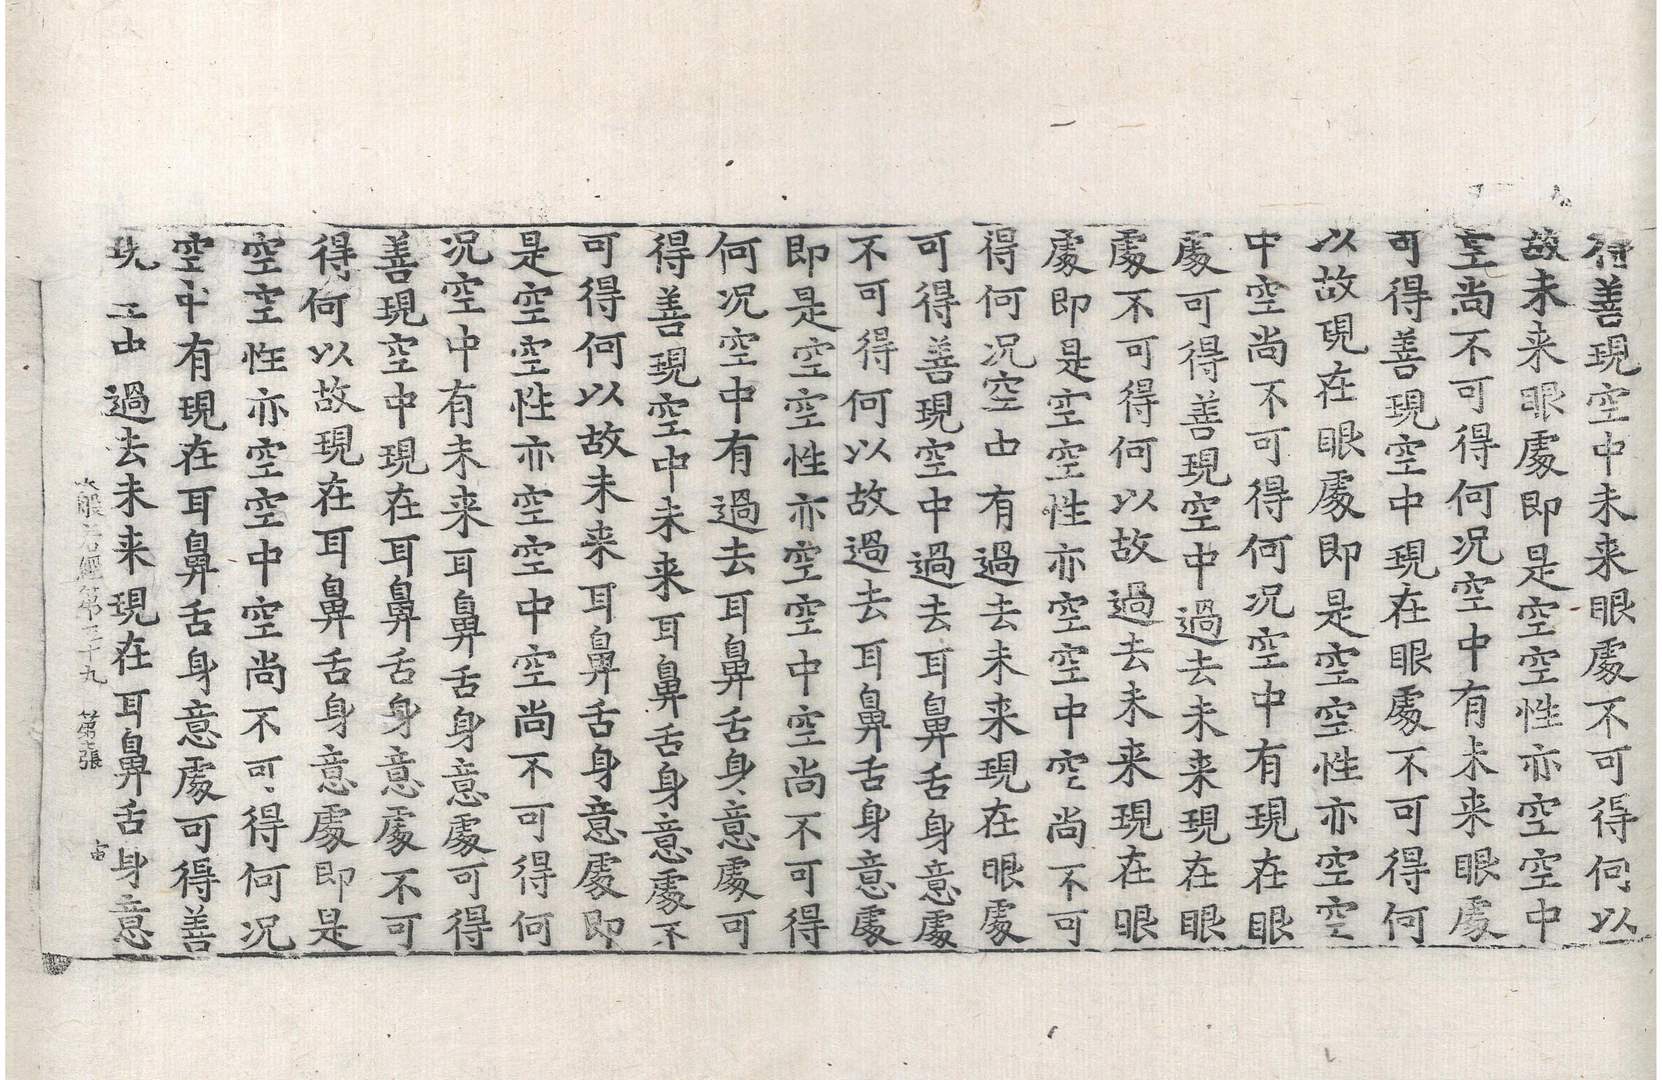 得善現空中未来眼處不可得何以
故未来眼處即是空空性亦空空中
空尚不可得何况空中有未来眼處
可得善現空中現在眼處不可得何
以故現在眼處即是空空性亦空空
中空尚不可得何况空中有現在眼
處可得善現空中過去未来現在眼
處不可得何以故過去未来現在眼
處即是空空性亦空空中空尚不可
得何况空中有過去未来現在眼處
可得善現空中過去耳鼻舌身意處
不可得何以故過去耳鼻舌身意處
即是空空性亦空空中空尚不可得
何况空中有過去耳鼻舌身意處可
得善現空中未来耳鼻舌身意處不
可得何以故未来耳鼻舌身意處即
是空空性亦空空中空尚不可得何
况空中有未来耳鼻舌身意處可得
善現空中現在耳鼻舌身意處不可
得何以故現在耳鼻舌身意處即是
空空性亦空空中空尚不可得何况
空中有現在耳鼻舌身意處可得善
現空中過去未来現在耳鼻舌身意
大般若經第五十九 第張 宙